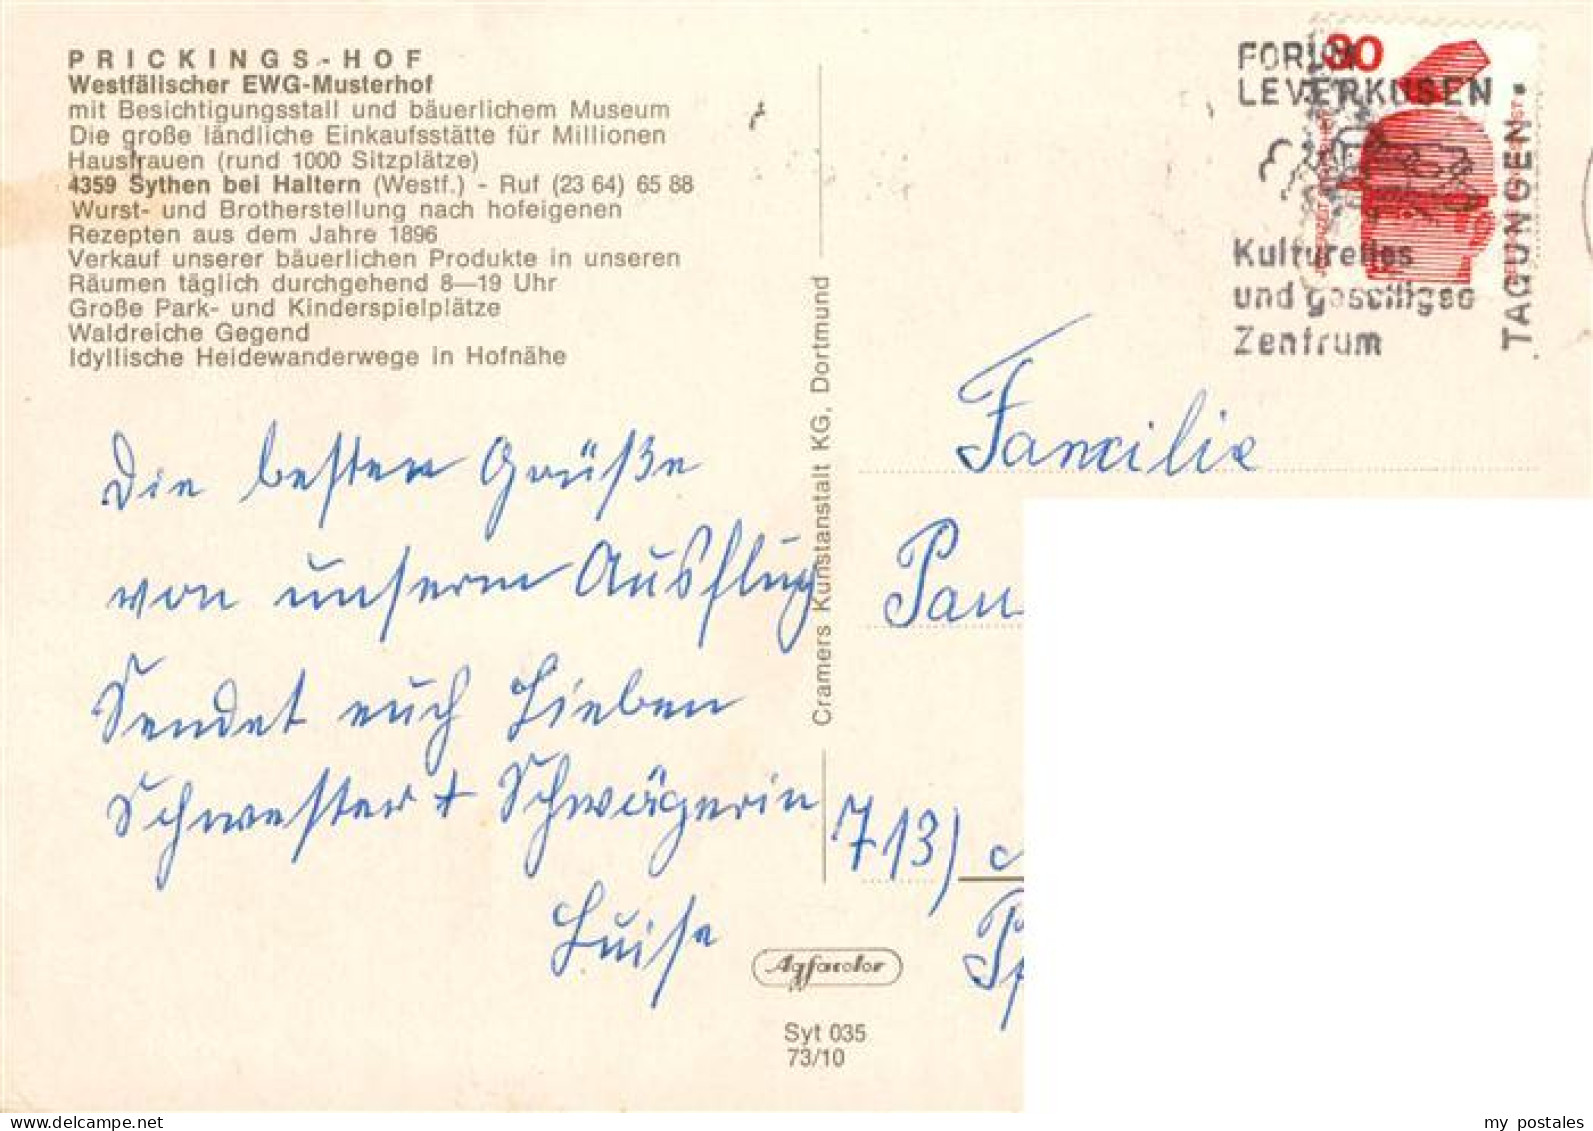 PRICKINGS-HOF
Westfälischer EWG-Musterhof
mit Besichtigungsstall und bäuerlichem Museum
Die große ländliche Einkaufsstätte für Millionen
Hausfrauen (rund 1000 Sitzplätze)
4359 Sythen bei Haltern (Westf.) - Ruf (23 64) 65 88
Wurst- und Brotherstellung nach hofeigenen
Rezepten aus dem Jahre 1896
Verkauf unserer bäuerlichen Produkte in unseren
Räumen täglich durchgehend 8—19 Uhr
Große Park- und Kinderspielplätze
Waldreiche Gegend
Idyllische Heidewanderwege in Hofnähe
Die besten Grüße
von unserm Ausflug
Sendet euch Lieben
Schwester + Schwägerin
Luise
Cramers Kunstanstalt KG, Dortmund
Agfacolor
Syt 035
73/10
30
FORUM
LEVERKUSEN
Kulturelles
und geselliges
Zentrum
TAGUNGEN
Familie
Pau
713)
my postales
www.delcampe.net